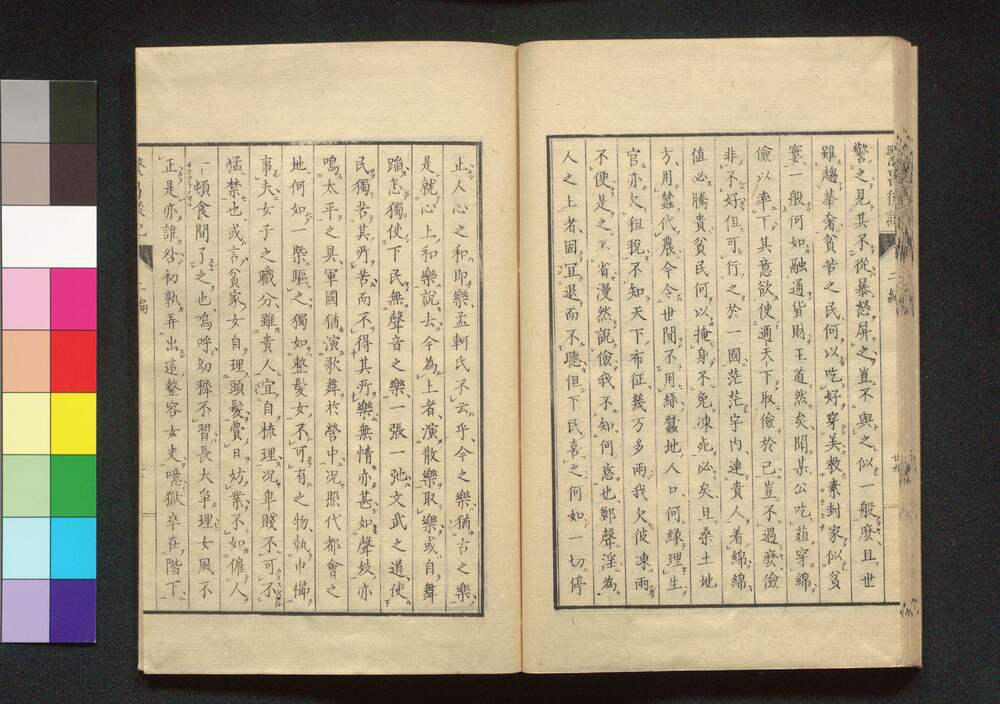 警之見其不從暴怒屏之豈不與之似一般麽且世
雖趨華奢貧苦之民何以吃好穿美教素封家似貧
窶一般何如融通貨財王道然矣聞某公吃菹穿綿
儉以率下其意欲使通天下取儉於己豈不過麽儉
非不好但可行之於一國茫茫宇內連貴人着綿綿
值必騰貴貧民何以掩身不免凍死必矣且桑土地
方用蠶代農令今世間不用絲蠶地人口何緣理生
官亦欠租稅不知天下布征幾万多兩我欠彼凍兩
不便是之不省漫然說儉我不知何意也鄭聲淫為
人之上者固宜退而不聽但下民喜之何如一切停
止人心之和即樂孟軻氏不云乎今之樂猶古之樂
是就心上和樂說去今為上者演散樂取樂或自舞
蹈怎獨使下民無聲音之樂一張一弛文武之道使
民獨苦其所苦而不得其所樂無情亦甚如聲妓亦
鳴太平之具軍國猶演歌舞於營中況照代都會之
地何如一槩驅之獨如整髮女不可有之物執巾櫛
事夫女子之職分雖貴人宜自梳理況卑賤不可不
猛禁也或言貧家女自理頭髮費日妨業不如僱人
一頓食間了之也嗚呼幼穉不習長大爭理女風不
正是亦誰咎初孰弄出這整容女吏噫獄卒在階下